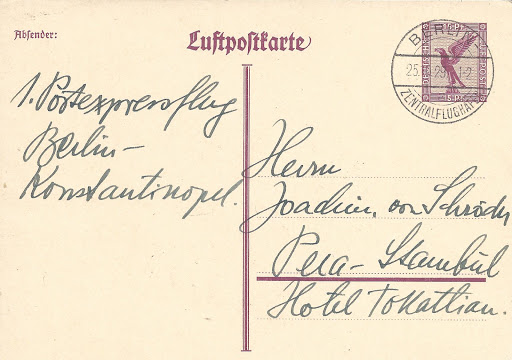 Absender:
Luftpostkarte
BERLIN
25. 29. 1-2
ZENTRALFLUGHAFEN
DEUTSCHES REICH
15 Pf
1. Postexpressflug
Berlin-
Konstantinopel.
Herrn
Joachim von Schröder
Pera-Stambul
Hotel Tokatlian.